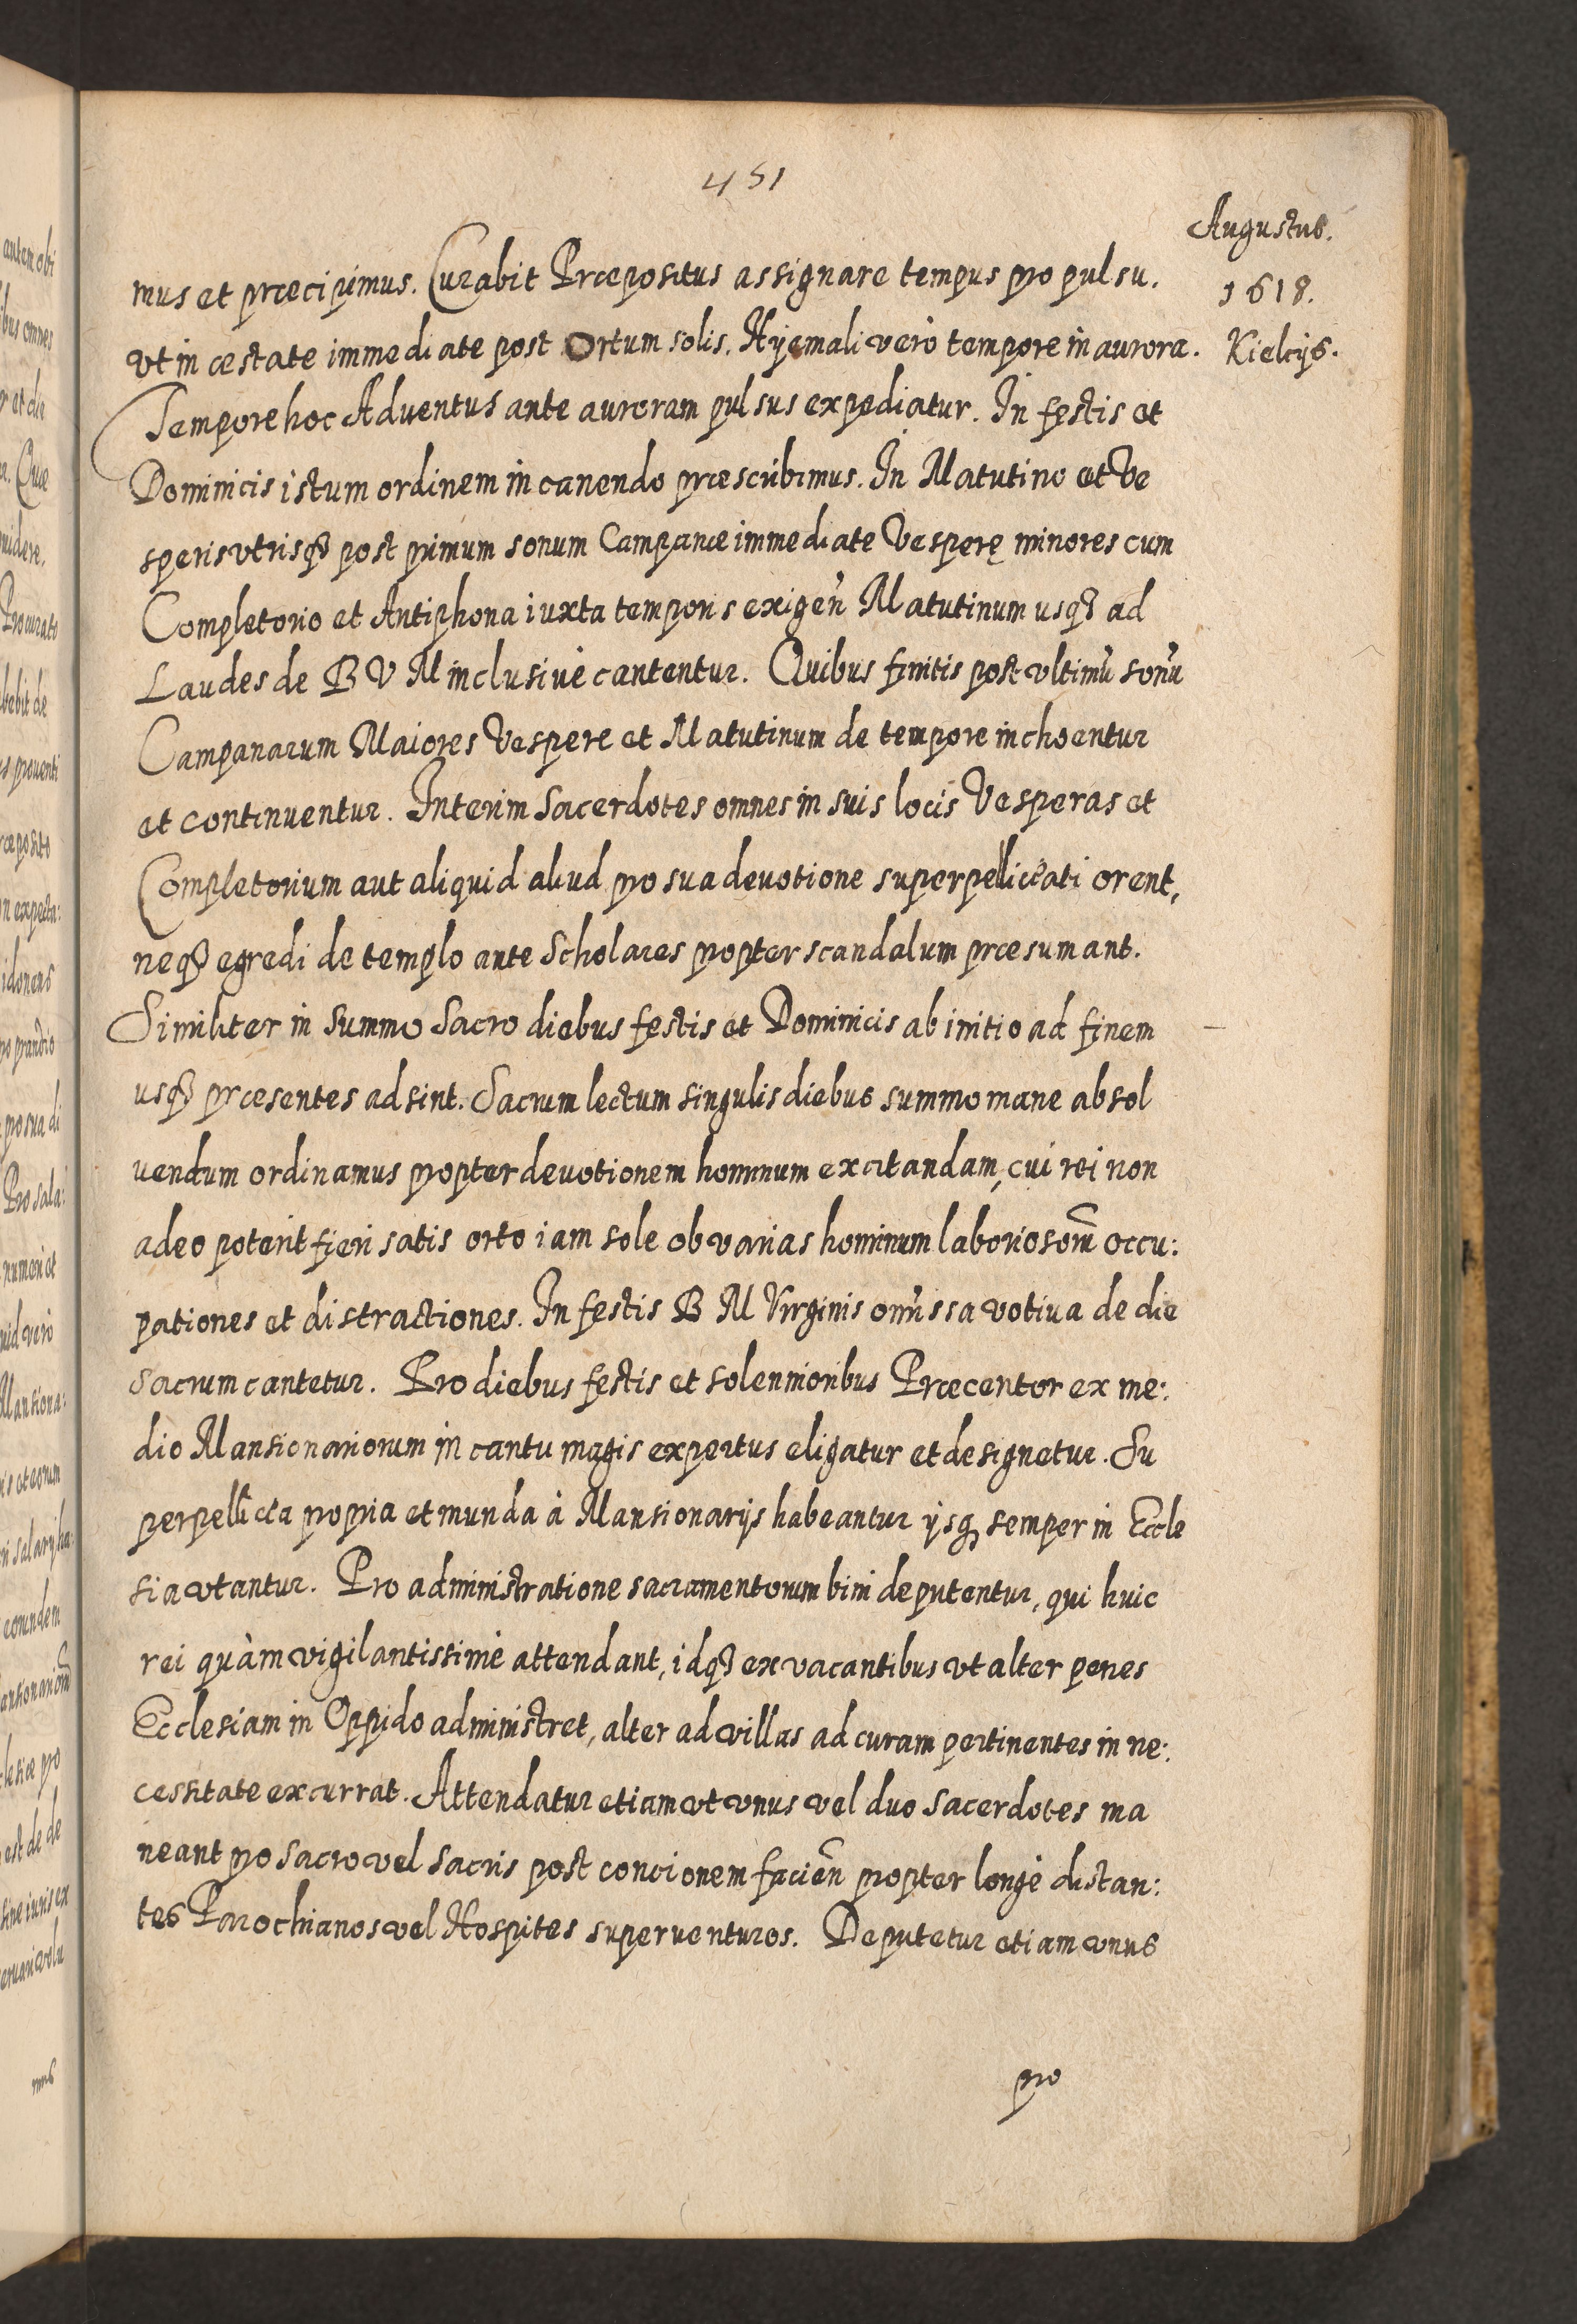 451
Augustus.
1618.
Kielcijs.
mus et præcipimus. Curabit Præpositus assignare tempus pro pulsu.
vt in æstate immediate post Ortum solis. Hyemali verò tempore in aurora.
Tempore hoc Aduentus ante auroram pulsus expediatur. In festis et
Dominicis istum ordinem in canendo præscribimus. In Matutino et Ve
speris vtrisq́ post primum sonum Campanæ immediate Vesperę minores cum
Completorio et Antiphona iuxta temporis exigeñ Matutinum usq́ ad
Laudes de B V M inclusiuè cantentur. Quibus finitis post vltimũ sonũ
Campanarum Maiores Vespere et Matutinum de tempore inchoentur
et continuentur. Interim Sacerdotes omnes in suis locis Vesperas et
Completorium aut aliquid aliud pro sua deuotione superpelliceati orent,
neq́ egredi de templo ante Scholares propter scandalum præsumant.
Similiter in summo Sacro diebus festis et Dominicis ab initio ad finem
usq́ præsentes adsint. Sacrum lectum singulis diebus summo mane absol
uendum ordinamus propter deuotionem hominum excitandam, cui rei non
adeo poterit fieri satis orto iam sole ob varias hominum laboriosom̃ occu:
pationes et distractiones. In festis B M Virginis omissa votiua de die
Sacrum cantetur. Pro diebus festis et solennioribus Præcentor ex me:
dio Mansionariorum in cantu magis expertus eligatur et designetur. Su
perpellicea propria et munda à Mansionarijs habeantur ijsq, semper in Eccle
sia vtantur. Pro administratione sacramentorum bini deputentur, qui huic
rei quàm vigilantissimè attendant, idq́ ex vacantibus vt alter penes
Ecclesiam in Oppido administret, alter ad villas ad curam pertinentes in ne:
cessitate excurrat. Attendatur etiam vt vnus vel duo Sacerdotes ma
neant pro sacro vel sacris post concionem facieñ propter longè distan:
tes Parochianos vel Hospites superuenturos. Deputetur etiam vnus
pro